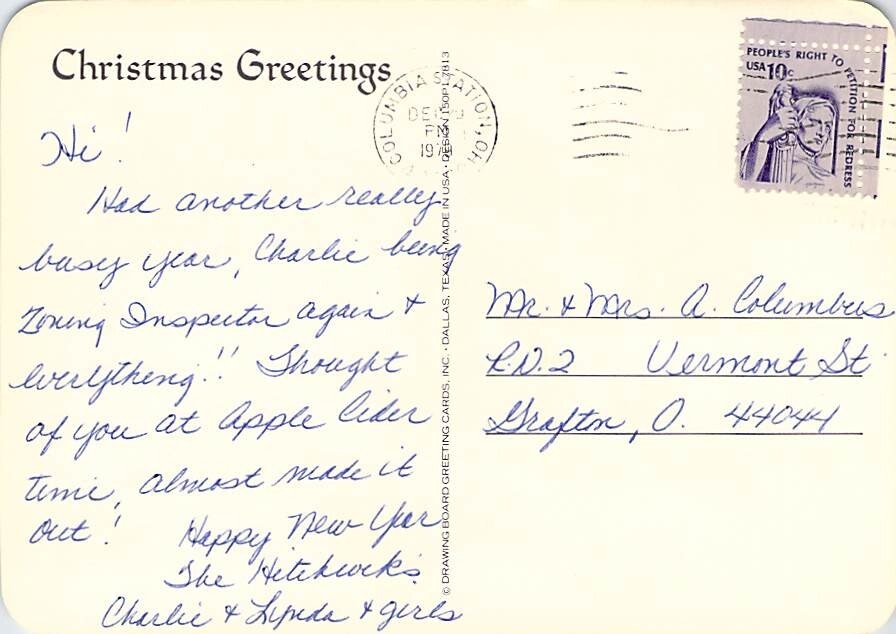 Christmas Greetings
Hi!
Had another really
busy year, Charlie being
Zoning Inspector again +
everything!! Thought
of you at Apple Cider
time, almost made it
out!
Happy New Year
The
Charlie + + girls
COLUMBIA STATION, OH
DEC
PM
PEOPLE'S RIGHT TO PETITION FOR REDRESS
USA 10c
Mr. + Mrs. A. Columbus
R.D. 2 Vermont St
Grafton, O. 44044
© DRAWING BOARD GREETING CARDS, INC. · DALLAS, TEXAS · MADE IN USA · DESIGN 150P1-7813